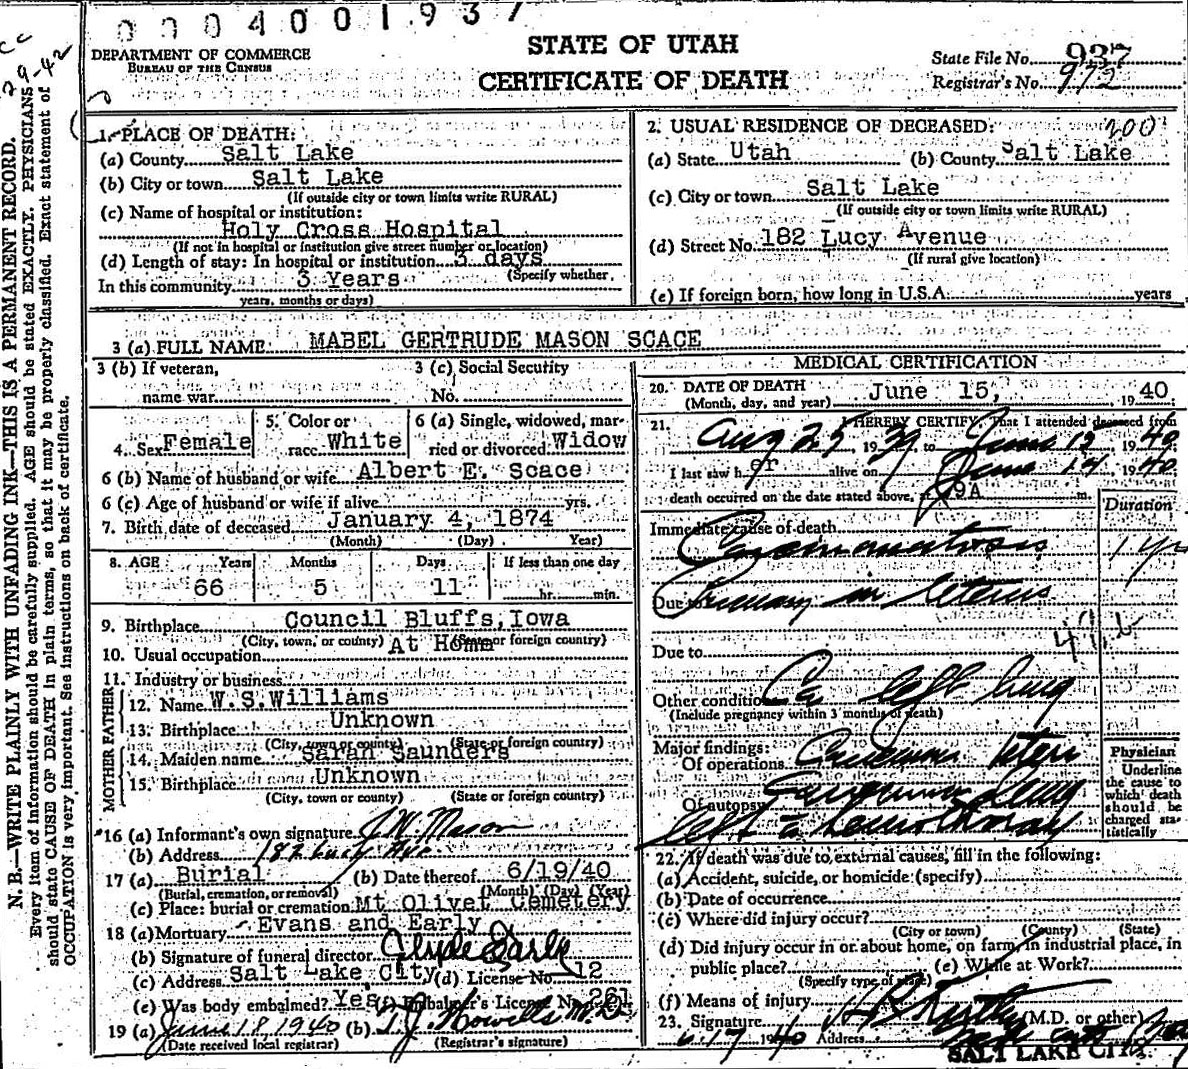 0004001937
DEPARTMENT OF COMMERCE
BUREAU OF THE CENSUS
STATE OF UTAH
CERTIFICATE OF DEATH
State File No. 937
Registrar's No. 972
1. PLACE OF DEATH:
(a) County Salt Lake
(b) City or town Salt Lake
(If outside city or town limits write RURAL)
(c) Name of hospital or institution:
Holy Cross Hospital
(If not in hospital or institution give street number or location)
(d) Length of stay: In hospital or institution 3 days
(Specify whether
In this community 3 Years
years, months or days)
2. USUAL RESIDENCE OF DECEASED: 200
(a) State Utah (b) County Salt Lake
(c) City or town Salt Lake
(If outside city or town limits write RURAL)
(d) Street No. 182 Lucy Avenue
(If rural give location)
(e) If foreign born, how long in U.S.A. years
3 (a) FULL NAME MABEL GERTRUDE MASON SCACE
3 (b) If veteran,
name war
3 (c) Social Security
No.
4. Sex Female
5. Color or
race White
6 (a) Single, widowed, mar-
ried or divorced Widow
6 (b) Name of husband or wife Albert E. Scace
6 (c) Age of husband or wife if alive yrs.
7. Birth date of deceased January 4, 1874
(Month) (Day) Year)
8. AGE Years Months Days If less than one day
66 5 11 hr. min.
9. Birthplace Council Bluffs, Iowa
(City, town, or county) (State or foreign country)
10. Usual occupation At Home
11. Industry or business
FATHER
12. Name W.S.Williams
13. Birthplace Unknown
(City, town or county) (State or foreign country)
MOTHER
14. Maiden name Sarah Saunders
15. Birthplace Unknown
(City, town or county) (State or foreign country)
16 (a) Informant's own signature J.W. Mason
(b) Address 182 Lucy Ave.
17 (a) Burial (b) Date thereof 6/19/40
(Burial, cremation, or removal) (Month) (Day) (Year)
(c) Place: burial or cremation Mt Olivet Cemetery
18 (a) Mortuary Evans and Early
(b) Signature of funeral director Clyde Early
(c) Address Salt Lake City (d) License No. 12
(e) Was body embalmed? Yes (f) Embalmer's License No. 261
19 (a) June 18 1940 (b) T.J. Howells M.D.
(Date received local registrar) (Registrar's signature)
MEDICAL CERTIFICATION
20. DATE OF DEATH June 15, 1940
(Month, day, and year)
21. I HEREBY CERTIFY, That I attended deceased from
Aug 25 1939 to June 12 1940
I last saw her alive on June 14 1940
death occurred on the date stated above, at 9A m.
Duration
Immediate cause of death
Carcinomatosis 1 yr
Due to Primary in Uterus
Due to
Other condition Ca left lung
(Include pregnancy within 3 months of death)
Major findings:
Of operations Carcinoma Uteri
Of autopsy Carcinoma Lung
left
Physician
Underline
the cause to
which death
should be
charged sta-
tistically
22. If death was due to external causes, fill in the following:
(a) Accident, suicide, or homicide (specify)
(b) Date of occurrence
(c) Where did injury occur?
(City or town) (County) (State)
(d) Did injury occur in or about home, on farm, in industrial place, in
public place? (e) While at Work?
(Specify type of place)
(f) Means of injury
23. Signature (M.D. or other)
6-17 1940 Address
SALT LAKE CITY
N. B.—WRITE PLAINLY WITH UNFADING INK—THIS IS A PERMANENT RECORD.
Every item of information should be carefully supplied. AGE should be stated EXACTLY. PHYSICIANS
should state CAUSE OF DEATH in plain terms, so that it may be properly classified. Exact statement of
OCCUPATION is very important. See instructions on back of certificate.